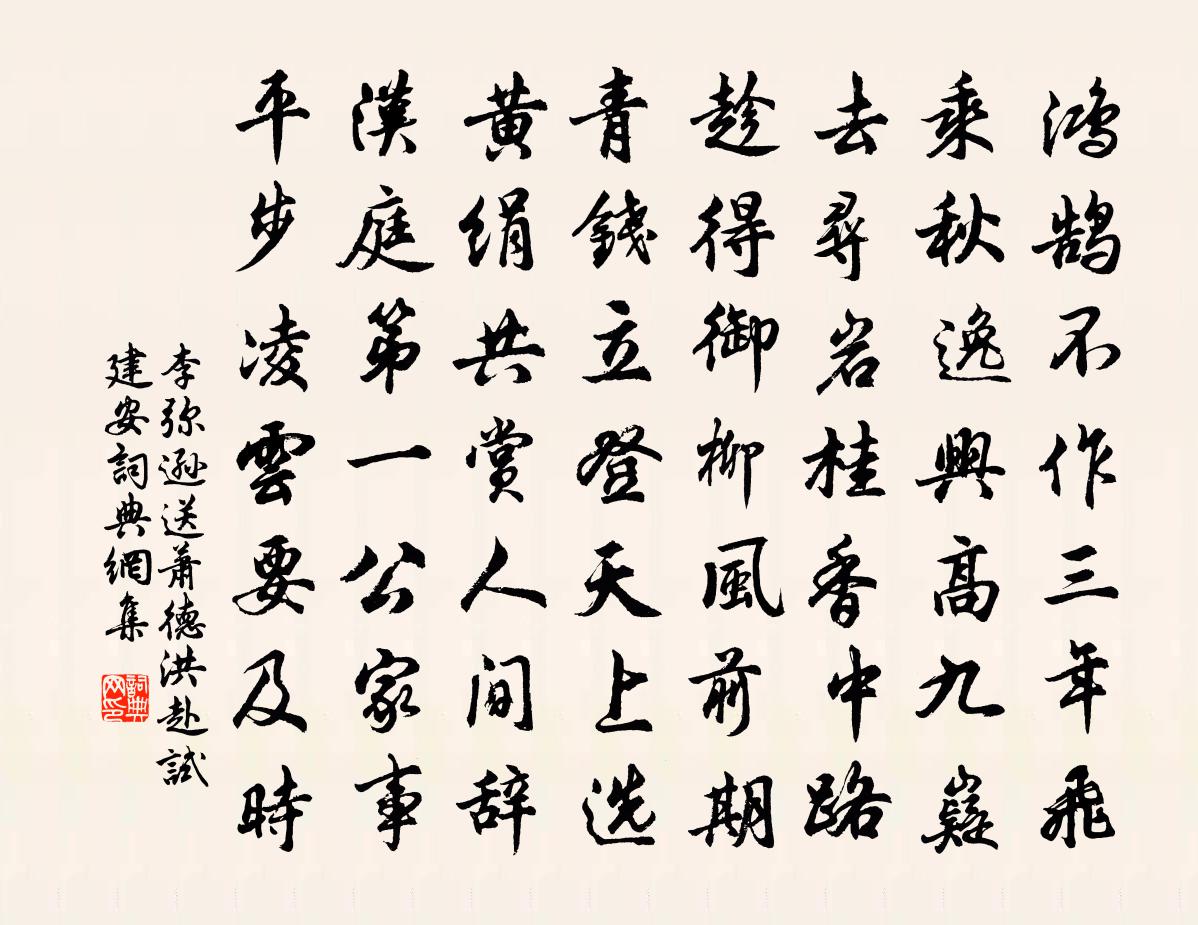 鸿鹄不作三年飛
乘秋逸興高九嶷
去尋岩桂香中路
趁得御柳風前期
青錢立登天上选
黄绢共赏人间辞
漢庭第一公家事
平步凌雲要及時
李弥遜送蕭德洪赴試
建安詞典網集
詞典网印